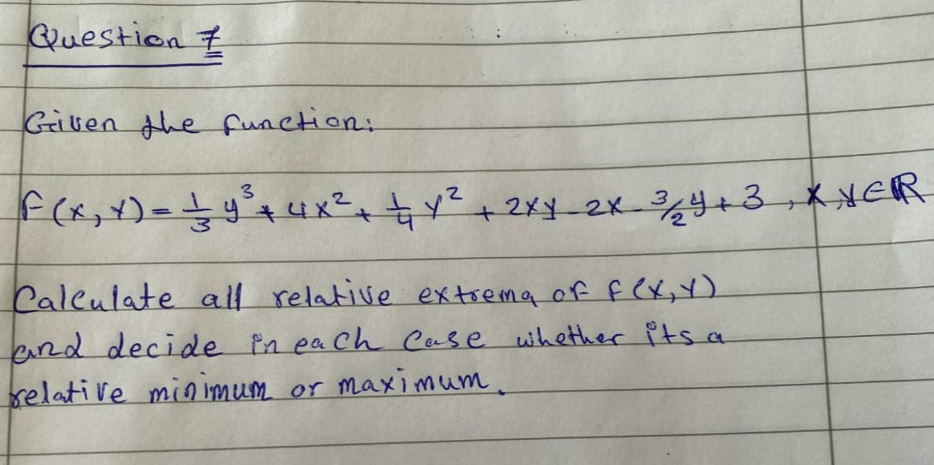 Question 7
Given the function:
F(x, y) = 1/3 y³ + 4x² + 1/4 y² + 2xy - 2x - 3/2 y + 3, x, y ∈ ℝ
Calculate all relative extrema of f(x, y)
and decide in each case whether its a
relative minimum or maximum.